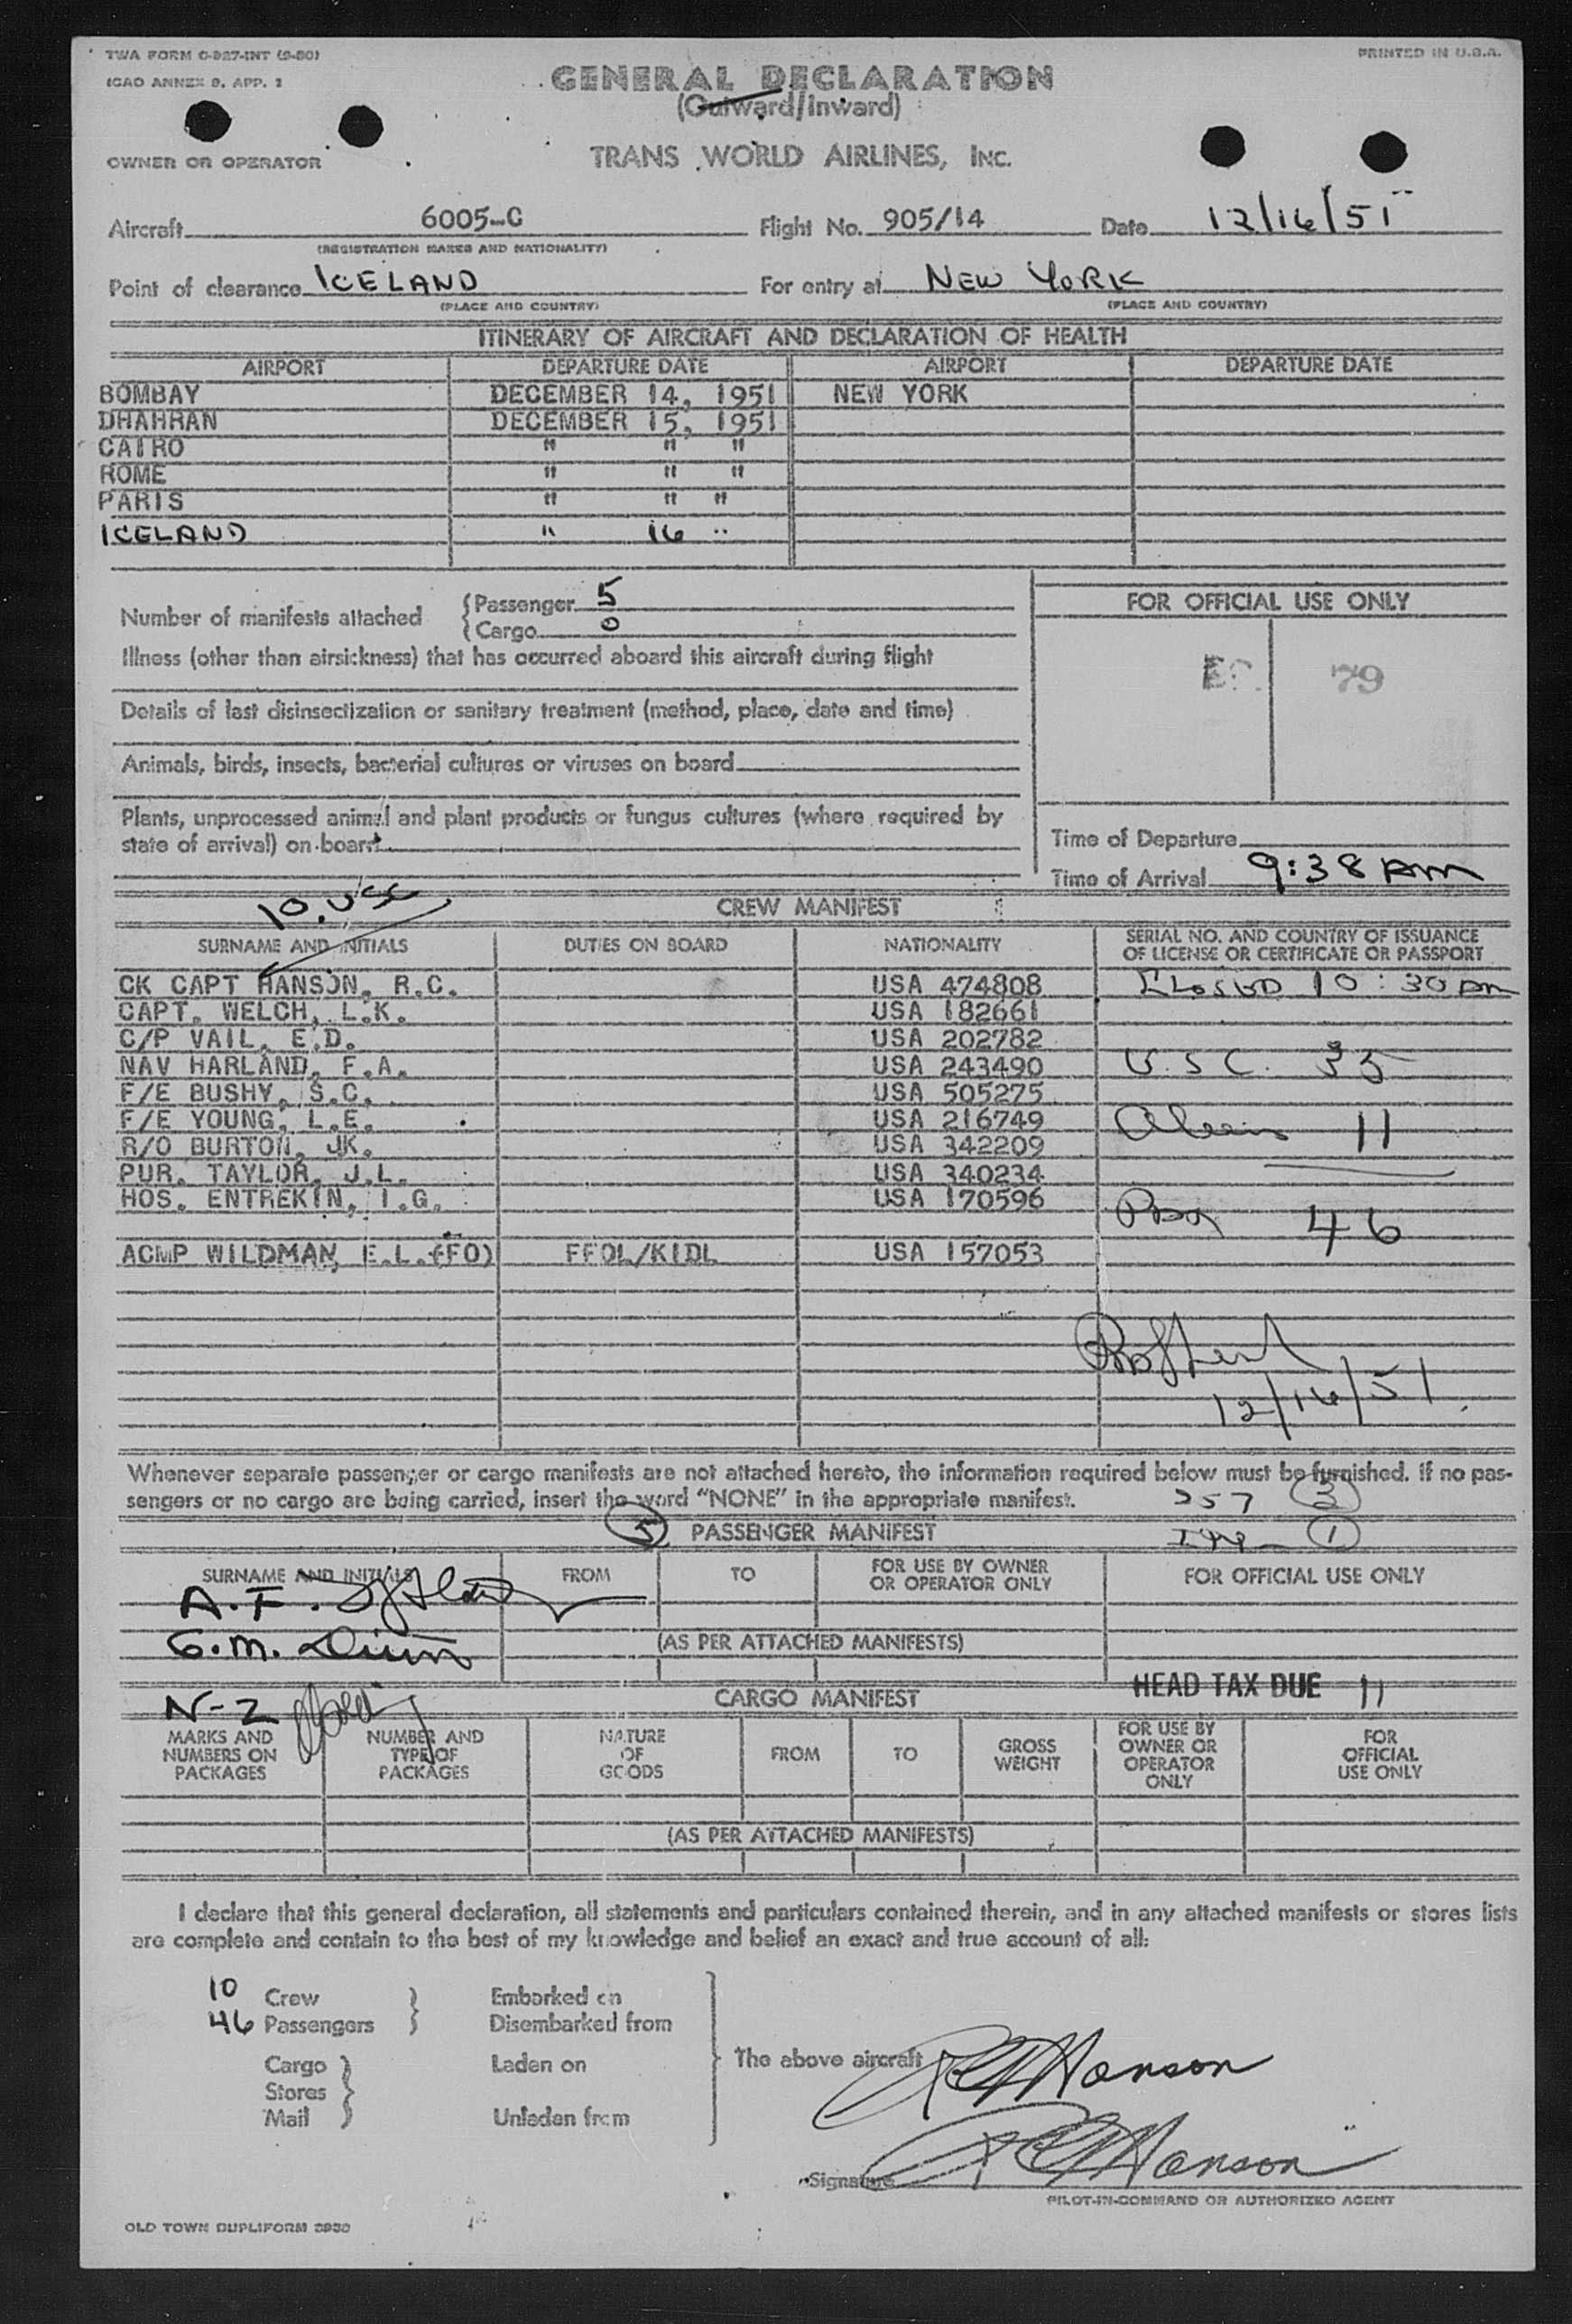 TWA FORM C-927-INT (9-50)
PRINTED IN U.S.A.
ICAO ANNEX 9, APP. 1
GENERAL DECLARATION
(Outward/Inward)
OWNER OR OPERATOR
TRANS WORLD AIRLINES, INC.
Aircraft 6005-C Flight No. 905/14 Date 12/16/51
(REGISTRATION MARKS AND NATIONALITY)
Point of clearance ICELAND For entry at NEW YORK
(PLACE AND COUNTRY) (PLACE AND COUNTRY)
ITINERARY OF AIRCRAFT AND DECLARATION OF HEALTH
AIRPORT DEPARTURE DATE AIRPORT DEPARTURE DATE
BOMBAY DECEMBER 14, 1951 NEW YORK
DHAHRAN DECEMBER 15, 1951
CAIRO " " "
ROME " " "
PARIS " " "
ICELAND " 16 "
Number of manifests attached {Passenger 5
{Cargo 0
FOR OFFICIAL USE ONLY
79
Illness (other than airsickness) that has occurred aboard this aircraft during flight
Details of last disinsectization or sanitary treatment (method, place, date and time)
Animals, birds, insects, bacterial cultures or viruses on board
Plants, unprocessed animal and plant products or fungus cultures (where required by
state of arrival) on board
Time of Departure
Time of Arrival 9:38 AM
10. USC
CREW MANIFEST
SURNAME AND INITIALS DUTIES ON BOARD NATIONALITY SERIAL NO. AND COUNTRY OF ISSUANCE
OF LICENSE OR CERTIFICATE OR PASSPORT
CK CAPT HANSON, R.C. USA 474808 CLOSED 10:30 AM
CAPT. WELCH, L.K. USA 182661
C/P VAIL, E.D. USA 202782
NAV HARLAND, F.A. USA 243490 U.S.C. 35
F/E BUSHY, S.C. USA 505275
F/E YOUNG, L.E. USA 216749 Aliens 11
R/O BURTON, JK. USA 342209
PUR. TAYLOR, J.L. USA 340234
HOS. ENTREKIN, I.G. USA 170596
46
ACMP WILDMAN, E.L.(FO) FFOL/KIDL USA 157053
12/16/51
Whenever separate passenger or cargo manifests are not attached hereto, the information required below must be furnished. If no pas-
sengers or no cargo are being carried, insert the word "NONE" in the appropriate manifest.
257 3
5 PASSENGER MANIFEST
1
SURNAME AND INITIALS FROM TO FOR USE BY OWNER
OR OPERATOR ONLY
FOR OFFICIAL USE ONLY
A.F.
G.M.
(AS PER ATTACHED MANIFESTS)
HEAD TAX DUE 11
N-2
CARGO MANIFEST
MARKS AND
NUMBERS ON
PACKAGES
NUMBER AND
TYPE OF
PACKAGES
NATURE
OF
GOODS
FROM
TO
GROSS
WEIGHT
FOR USE BY
OWNER OR
OPERATOR
ONLY
FOR
OFFICIAL
USE ONLY
(AS PER ATTACHED MANIFESTS)
I declare that this general declaration, all statements and particulars contained therein, and in any attached manifests or stores lists
are complete and contain to the best of my knowledge and belief an exact and true account of all:
10 Crew Embarked on
46 Passengers Disembarked from
Cargo Laden on The above aircraft R C Hanson
Stores
Mail Unladen from
Signature R C Hanson
PILOT-IN-COMMAND OR AUTHORIZED AGENT
OLD TOWN DUPLIFORM